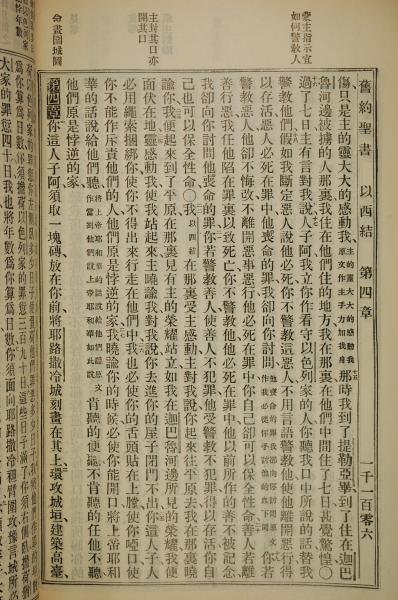 舊約聖書　以西結　第四章　一千一百零六
蒙主指示宜如何警敎人
主封其口亦開其口
命畫圍城圖
傷只是主的靈大大的感動我
主的靈大大的感動我原文作主的手大力加我身
那時我到了提勒亞畢到了住在迦巴
魯河邊被擄的人那裏我住在他們住的地方我在那裏在他們中間住了七日甚覺驚惶〇
過了七日主有言對我說人子阿我立你作看守以色列家的人你聽我口中所說的話替我
警敎他們假如我斷定惡人說他必死你不警敎這惡人不用言語警敎他使他離開惡行得
以存活惡人必死在罪中他喪命的罪我卻向你討問
你若
警敎惡人他卻不悔改不離開惡事惡行他必死在罪中你自己卻可以保全性命善人若離
善行惡我任他陷在罪裏以致死亡你不警敎他他必死在罪中他以前所作的善不被記念
我卻向你討問他喪命的罪你若警敎善人使善人不犯罪他受警敎不犯罪得以存活你自
己也可以保全性命〇我
以西結
在那裏受主感動主對我說你起來往平原去我在那裏曉
諭你我便起來到了平原在那裏見有主的榮耀站立如我在迦巴魯河邊所見的榮耀我便
面伏在地靈感動我使我站起來主曉諭我對我說你去進你的屋子閉門不出你這人子人
必用繩索捆綁你使你不得出來行走在他們中我也必使你的舌頭貼在上膛使你啞口使
你不能作斥責他們的人他們原是悖逆的家我曉諭你的時候必使你能開口將上帝耶和
華的話說給他們聽
將上帝耶和華的話說給他們聽原文作當對他們說上帝耶和華如此說
肯聽的便聽不肯聽的任他不聽
他們原是悖逆的家
第四章　你這人子阿須取一塊磚放在你前將耶路撒冷城刻畫在其上環攻城垣建築高臺